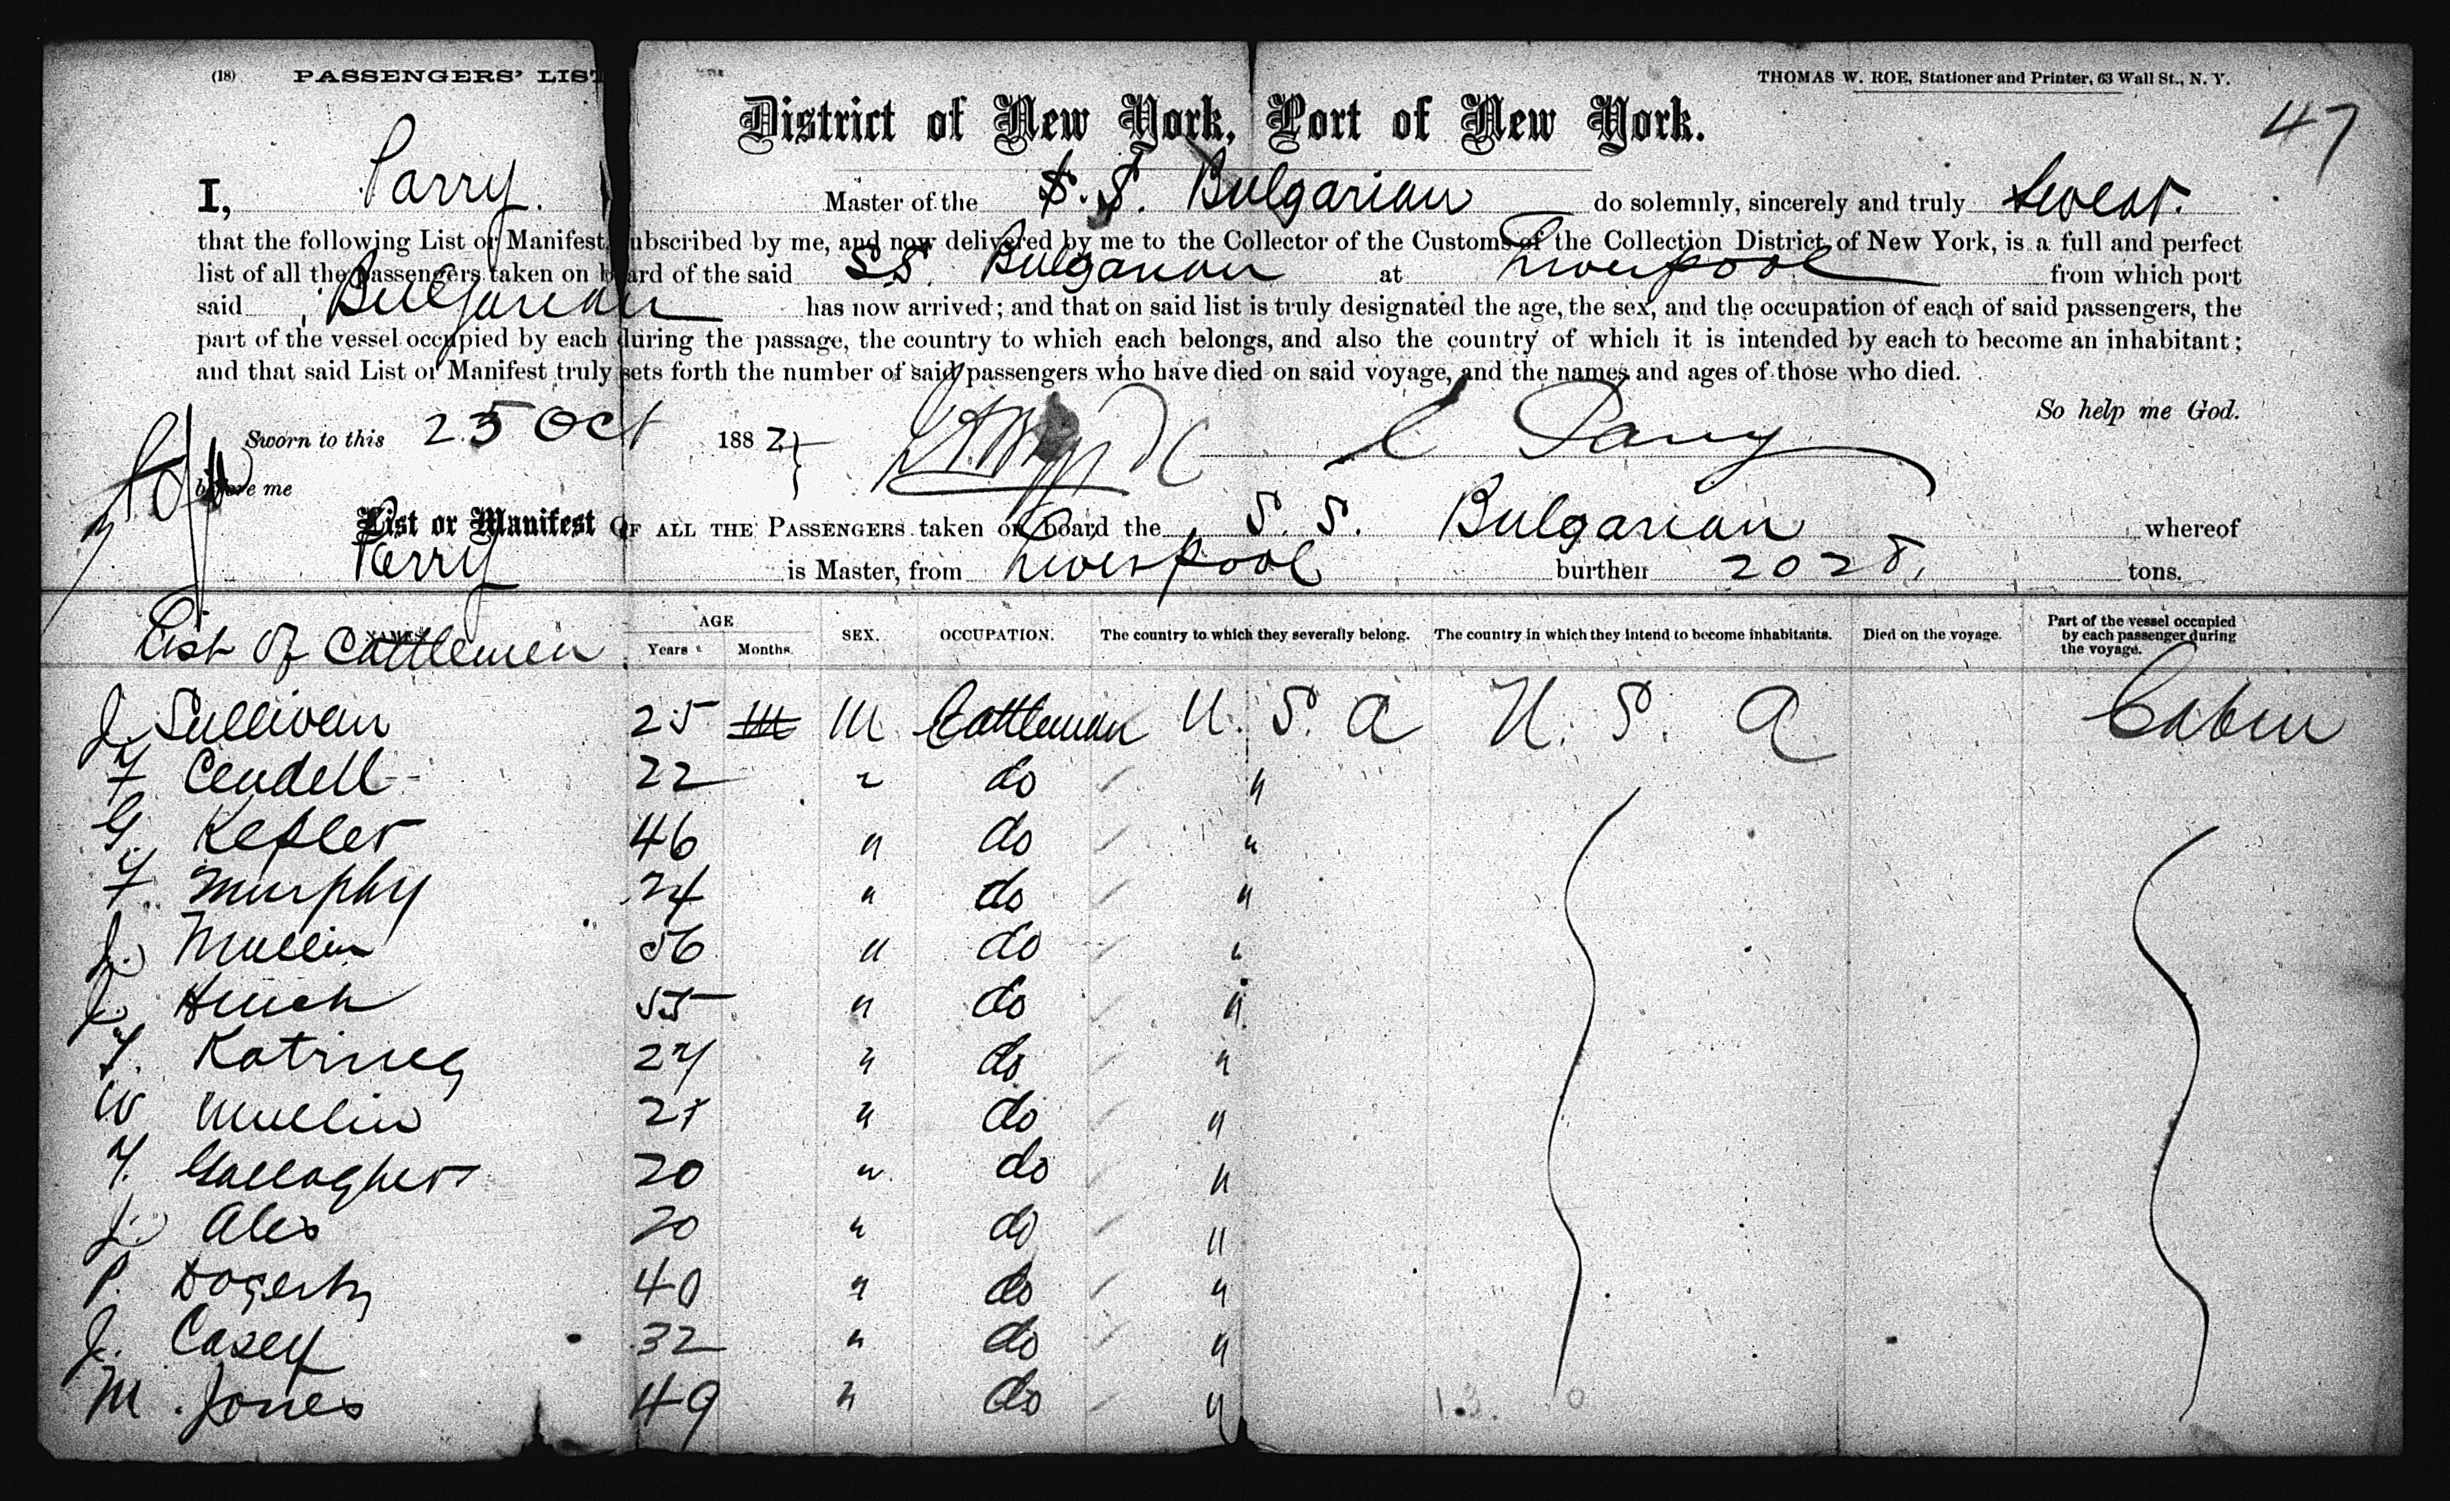 (18) PASSENGERS' LIST
THOMAS W. ROE, Stationer and Printer, 63 Wall St., N. Y.
47
District of New York, Port of New York.
I, Parry. Master of the S.S. Bulgarian do solemnly, sincerely and truly swear.
that the following List or Manifest, ubscribed by me, and now delivered by me to the Collector of the Customs of the Collection District of New York, is a full and perfect
list of all the Passengers taken on b ard of the said SS. Bulgarian at Liverpool from which port
said Bulgarian has now arrived; and that on said list is truly designated the age, the sex, and the occupation of each of said passengers, the
part of the vessel occupied by each during the passage, the country to which each belongs, and also the country of which it is intended by each to become an inhabitant;
and that said List or Manifest truly sets forth the number of said passengers who have died on said voyage, and the names and ages of those who died.
So help me God.
Sworn to this 25 Oct 1882 } Parry
before me
List or Manifest OF ALL THE PASSENGERS taken on board the S. S. Bulgarian whereof
Perry is Master, from Liverpool burthen 2028, tons.
NAMES. AGE Years Months. SEX. OCCUPATION. The country to which they severally belong. The country in which they intend to become inhabitants. Died on the voyage. Part of the vessel occupied by each passenger during the voyage.
List of Cattlemen
J. Sullivan 25 M Cattleman U. S. A U. S. A Cabin
F Cendell 22 " do "
G. Kefler 46 " do "
F. Murphy 24 " do "
J. Mullin 56 " do "
J. 55 " do "
" do "
W Mullin 21 " do "
Gallagher 20 " do "
J. Alex 20 " do "
P. Dogerty 40 " do "
J. Casey 32 " do "
M. Jones 49 " do "
13. 0